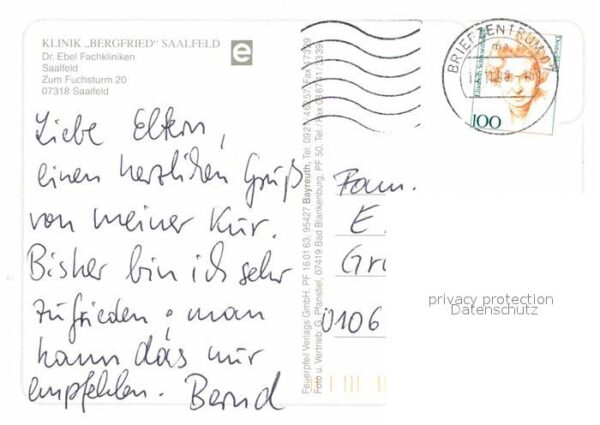 KLINIK „BERGFRIED“ SAALFELD
Dr. Ebel Fachkliniken
Saalfeld
Zum Fuchsturm 20
07318 Saalfeld
e
Liebe Eltern,
einen herzlichen Gruß
von meiner Kur.
Bisher bin ich sehr
zufrieden; man
kann das nur
empfehlen. Bernd
Feuerpfeil Verlags GmbH, PF 16 01 63, 95427 Bayreuth, Tel.
Foto u. Vertrieb: G. Pfanstiel, 07419 Bad Blankenburg, PF 50, Tel. / Fax
BRIEFZENTRUM 07
100
Fam.
E.
Gr
0106
privacy protection
Datenschutz